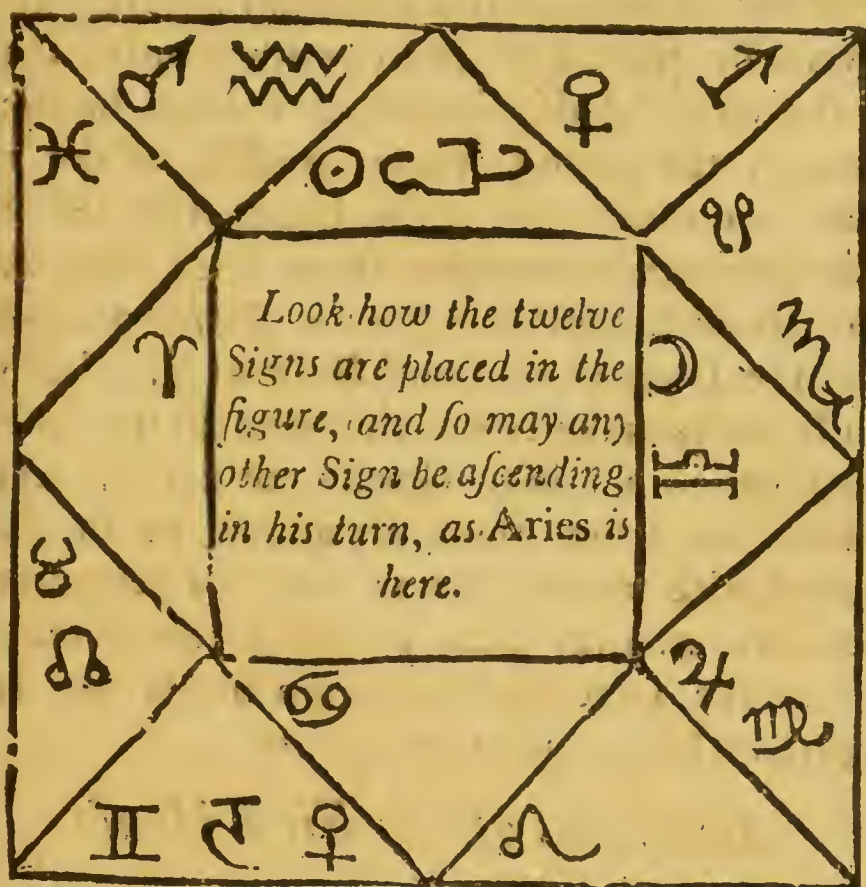 Look how the twelve
Signs are placed in the
figure, and ſo may any
other Sign be aſcending
in his turn, as Aries is
here.